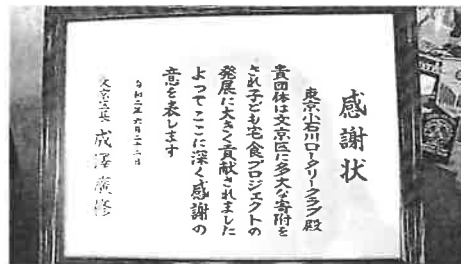 感謝状
東京小石川ロータリークラブ殿
貴団体は文京区に多大な寄附を
され子ども宅食プロジェクトの
発展に大きく貢献されました
よってここに深く感謝の
意を表します
令和二年六月二十二日
文京区長 成澤廣修